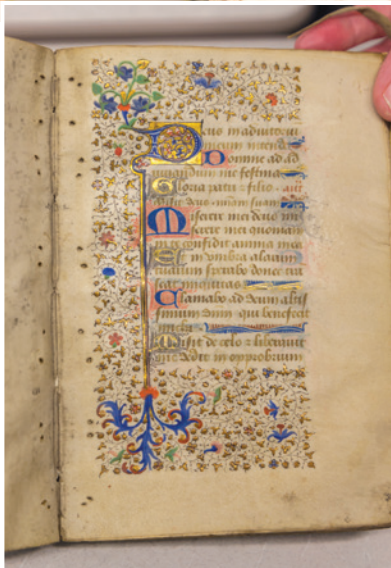 Deus in adiutoriu
meum intende
Domine ad ad
iuuandum me festina
Gloria patri et filio
Miserere mei deus mi
serere mei quoniam
in te confidit anima mea
Et in umbra alarum
tuarum sperabo donec tra
seat iniquitas
Clamabo ad deum altis
simum deum qui benefecit
michi
Misit de celo et liberauit
me dedit in opprobrium